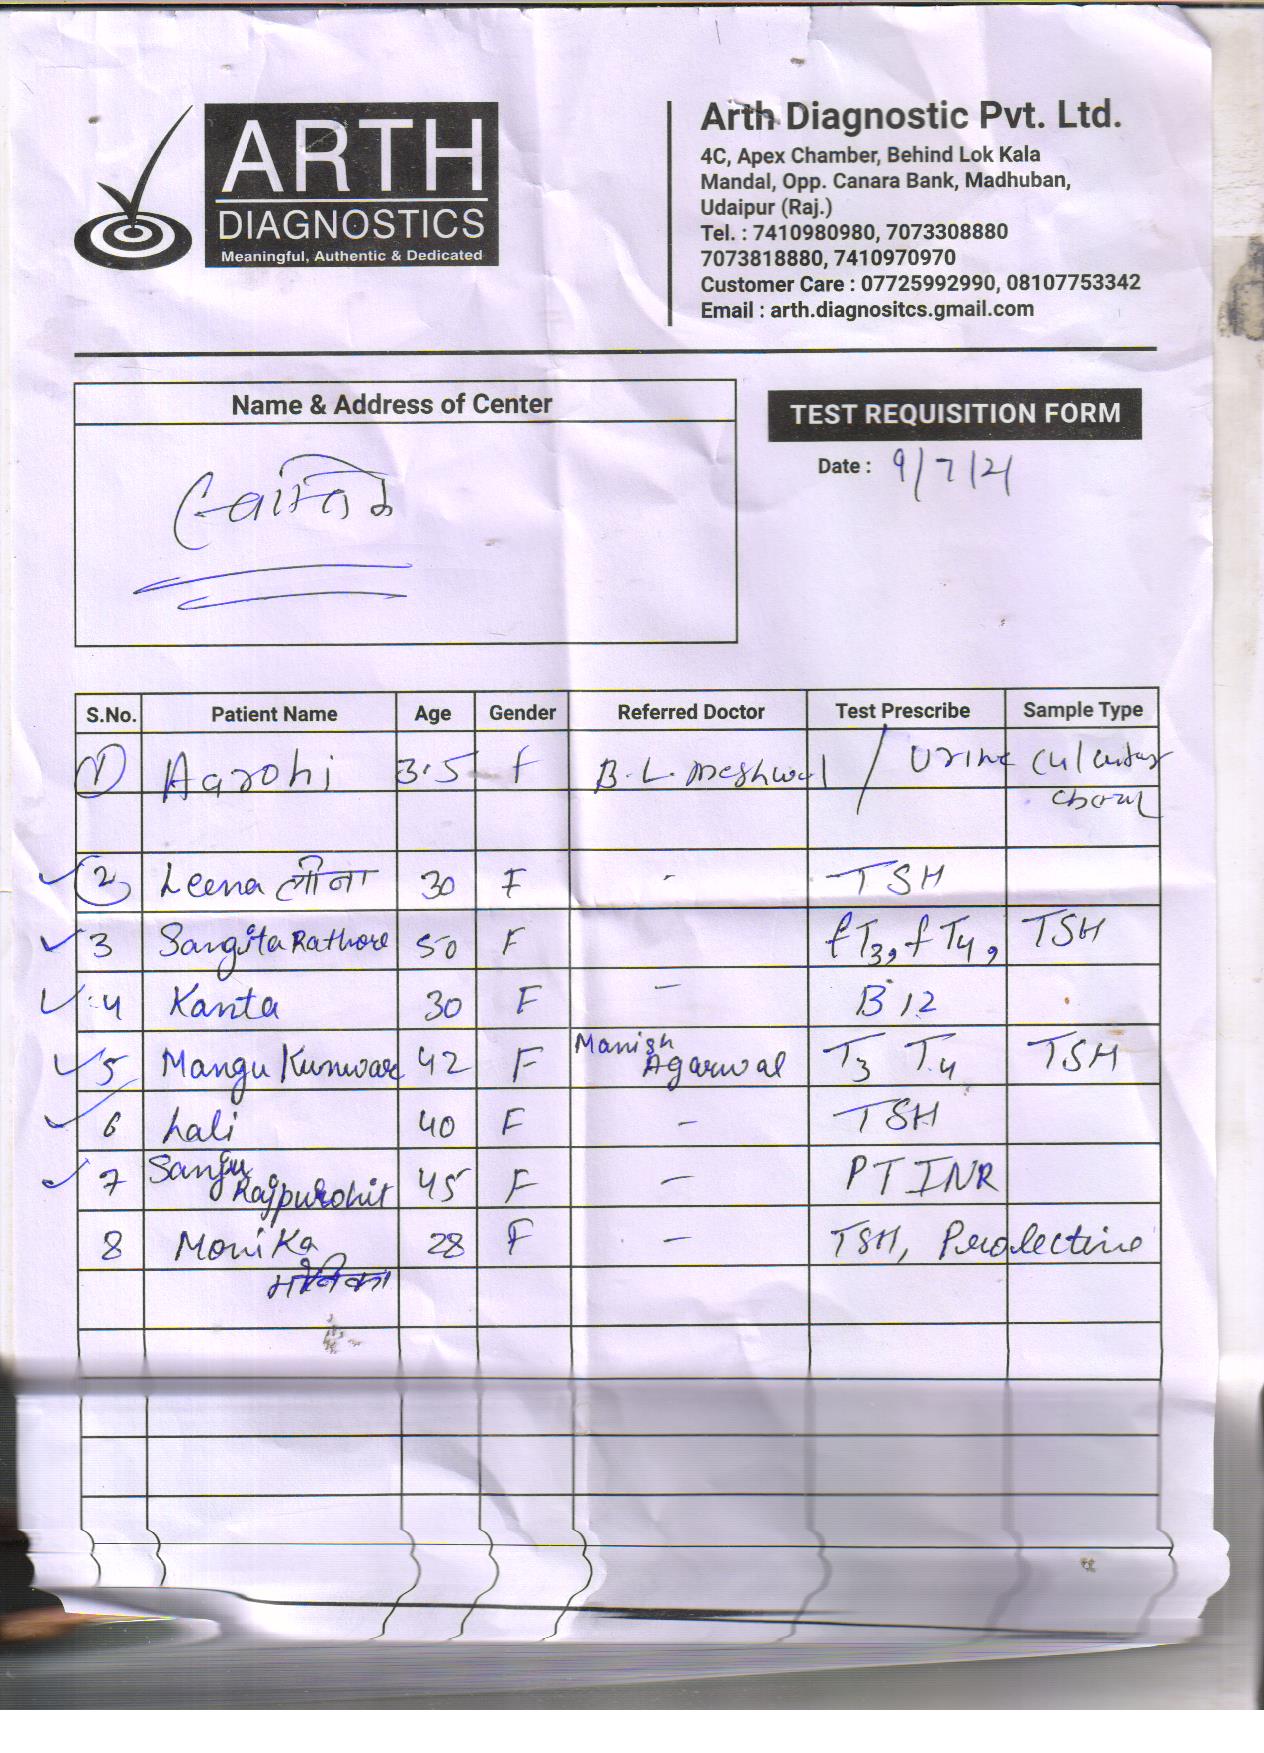 ARTH
DIAGNOSTICS
Meaningful, Authentic & Dedicated
Arth Diagnostic Pvt. Ltd.
4C, Apex Chamber, Behind Lok Kala
Mandal, Opp. Canara Bank, Madhuban,
Udaipur (Raj.)
Tel. : 7410980980, 7073308880
7073818880, 7410970970
Customer Care : 07725992990, 08107753342
Email : arth.diagnositcs.gmail.com
Name & Address of Center
TEST REQUISITION FORM
Date : 9/7/21
S.No. Patient Name Age Gender Referred Doctor Test Prescribe Sample Type
1 Aarohi 3.5 F B.L. Meghwal / Urine
2 Leena लीना 30 F - TSH
3 Sangita Rathore 50 F fT3, fT4, TSH
4 Kanta 30 F - B12
5 Mangu Kunwar 42 F Manish Agarwal T3 T4 TSH
6 Lali 40 F - TSH
7 Sanju Rajpurohit 45 F - PTINR
8 Monika 28 F - TSH, Prolectine
मोनिका